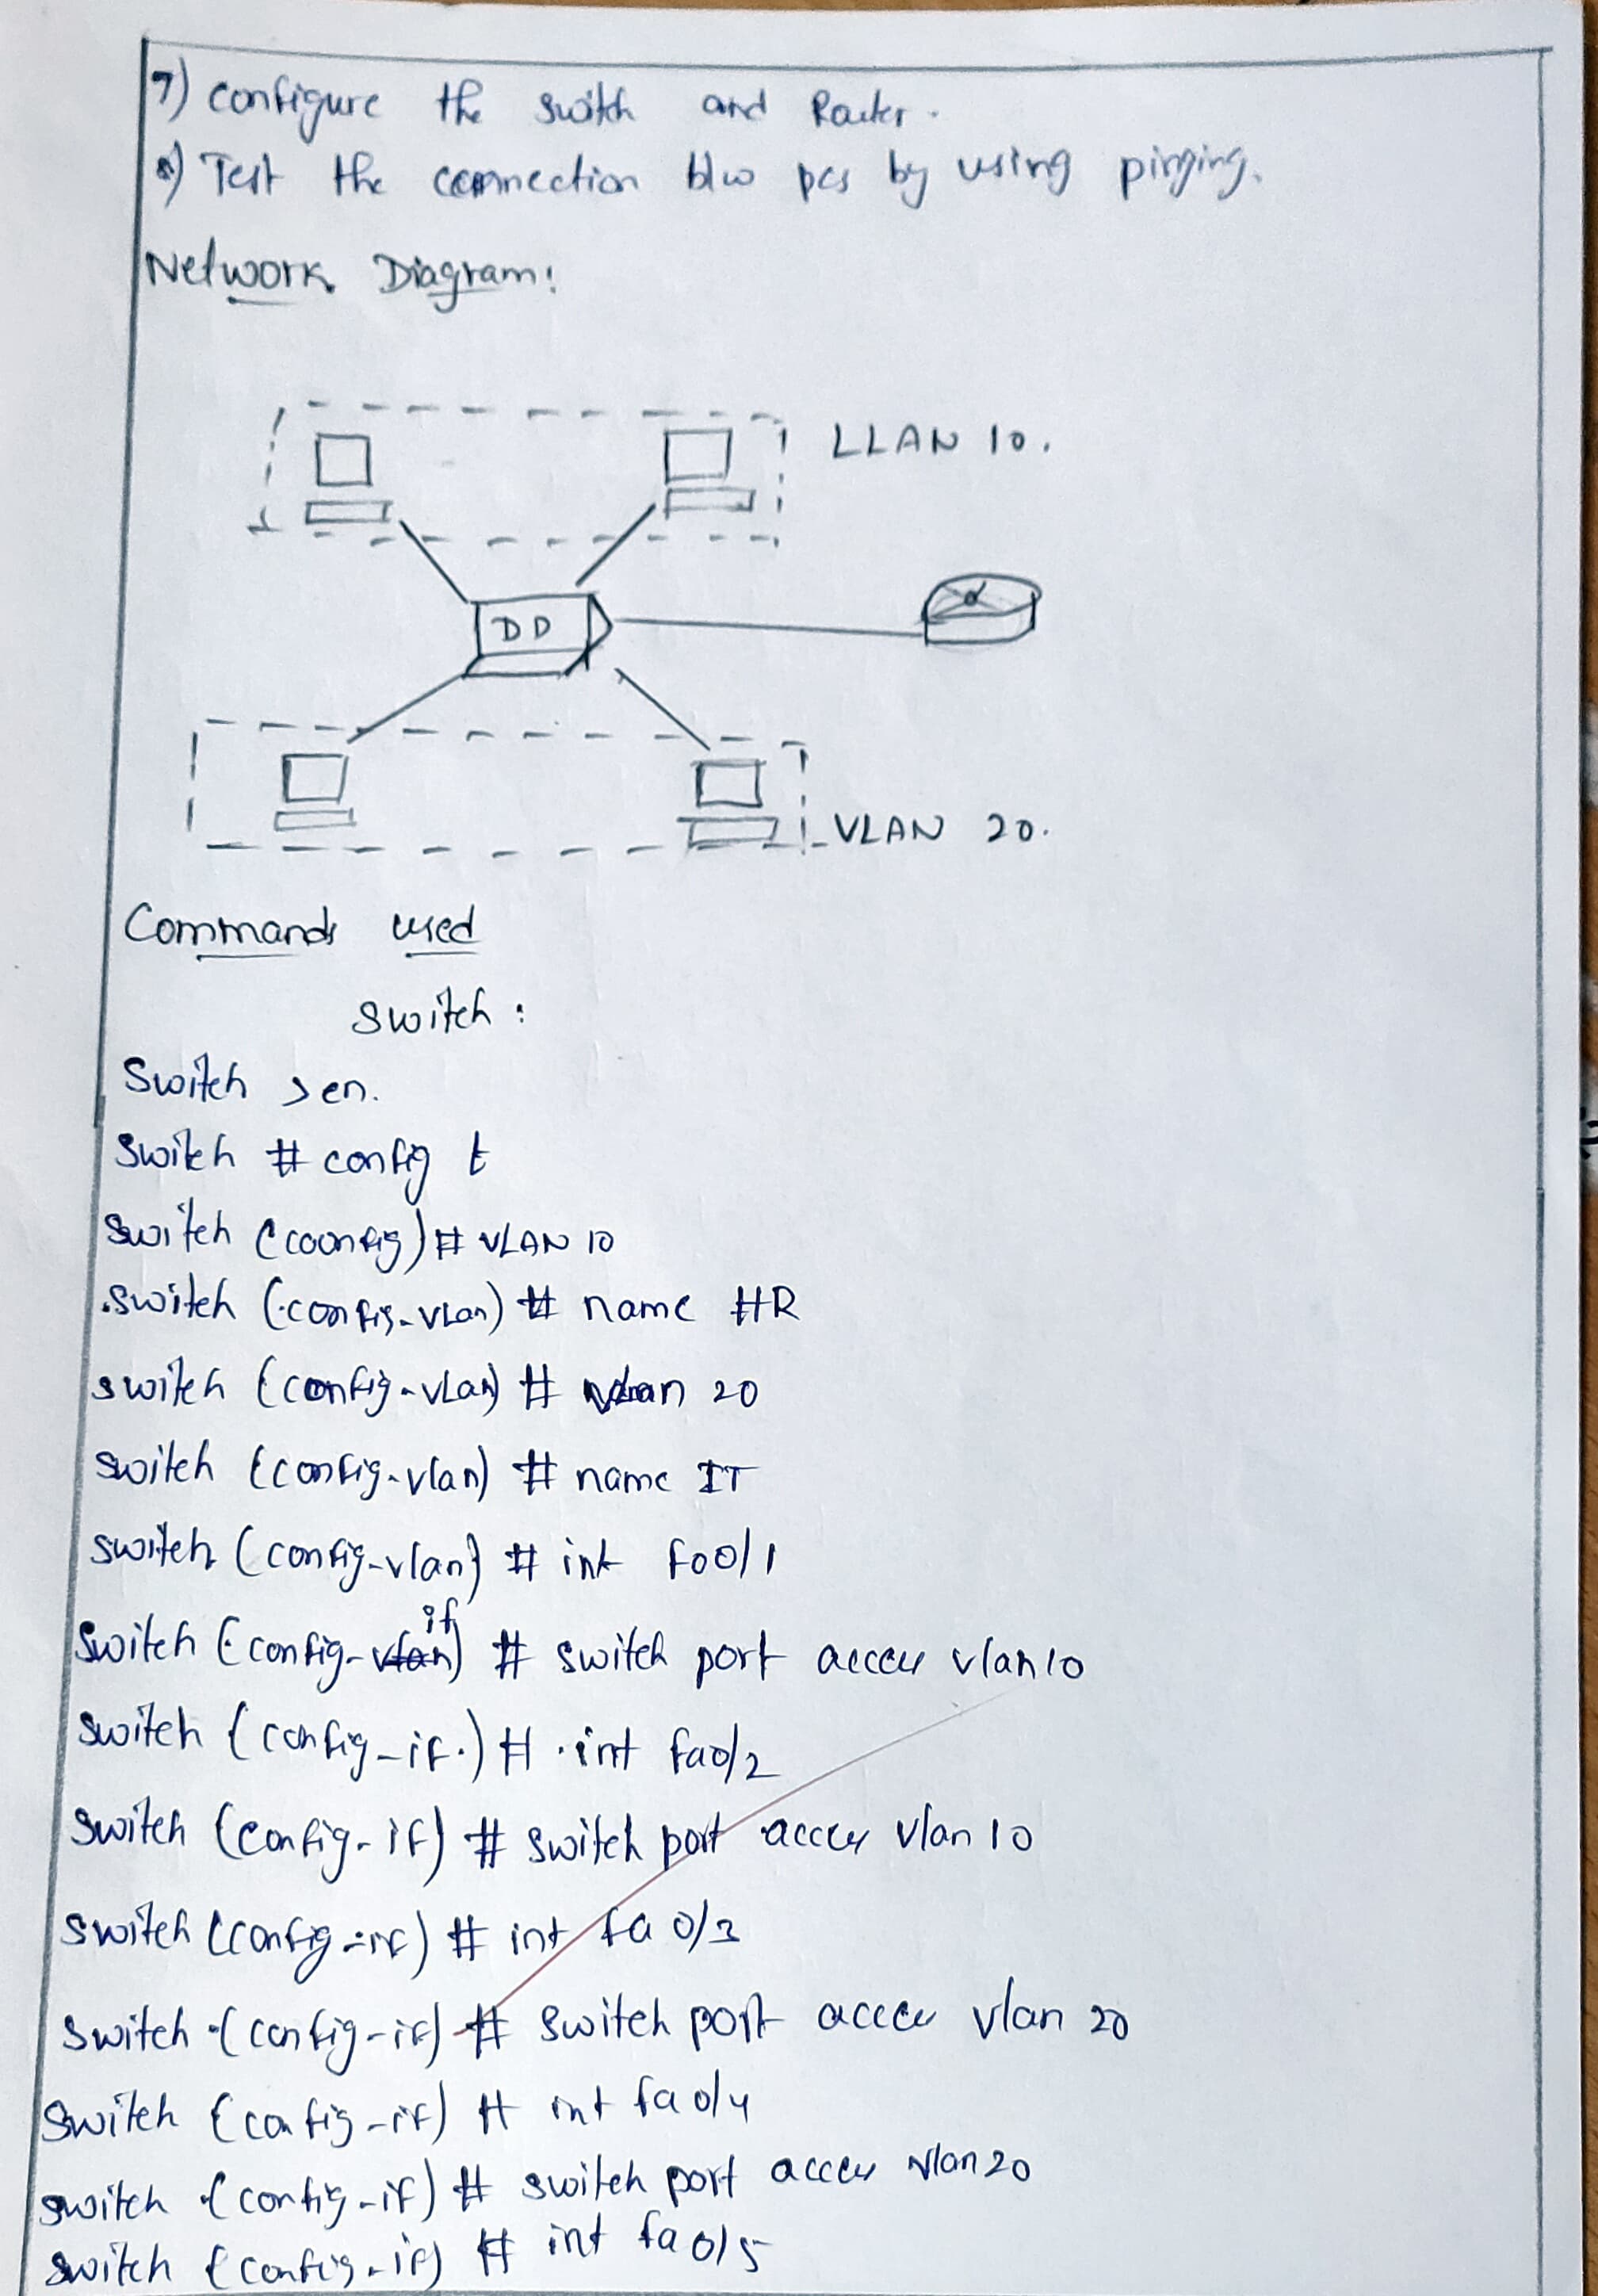 7) configure the switch and Router.
8) Test the connection b/w pcs by using pinging.
Network Diagram:
LLAN 10.
DD
VLAN 20.
Commands used
switch :
Switch >en.
Switch # config t
Switch (coonfig) # VLAN 10
switch (config-vlan) # name HR
switch (config-vlan) # vlan 20
switch (config-vlan) # name IT
switch (config-vlan) # int fa0/1
switch (config-if) # switch port access vlan 10
switch (config-if.) # int fa0/2
switch (config-if) # switch port access vlan 10
switch (config-if) # int fa 0/3
switch (config-if) # switch port access vlan 20
switch (config-if) # int fa 0/4
switch (config-if) # switch port access vlan 20
switch (config-if) # int fa 0/5